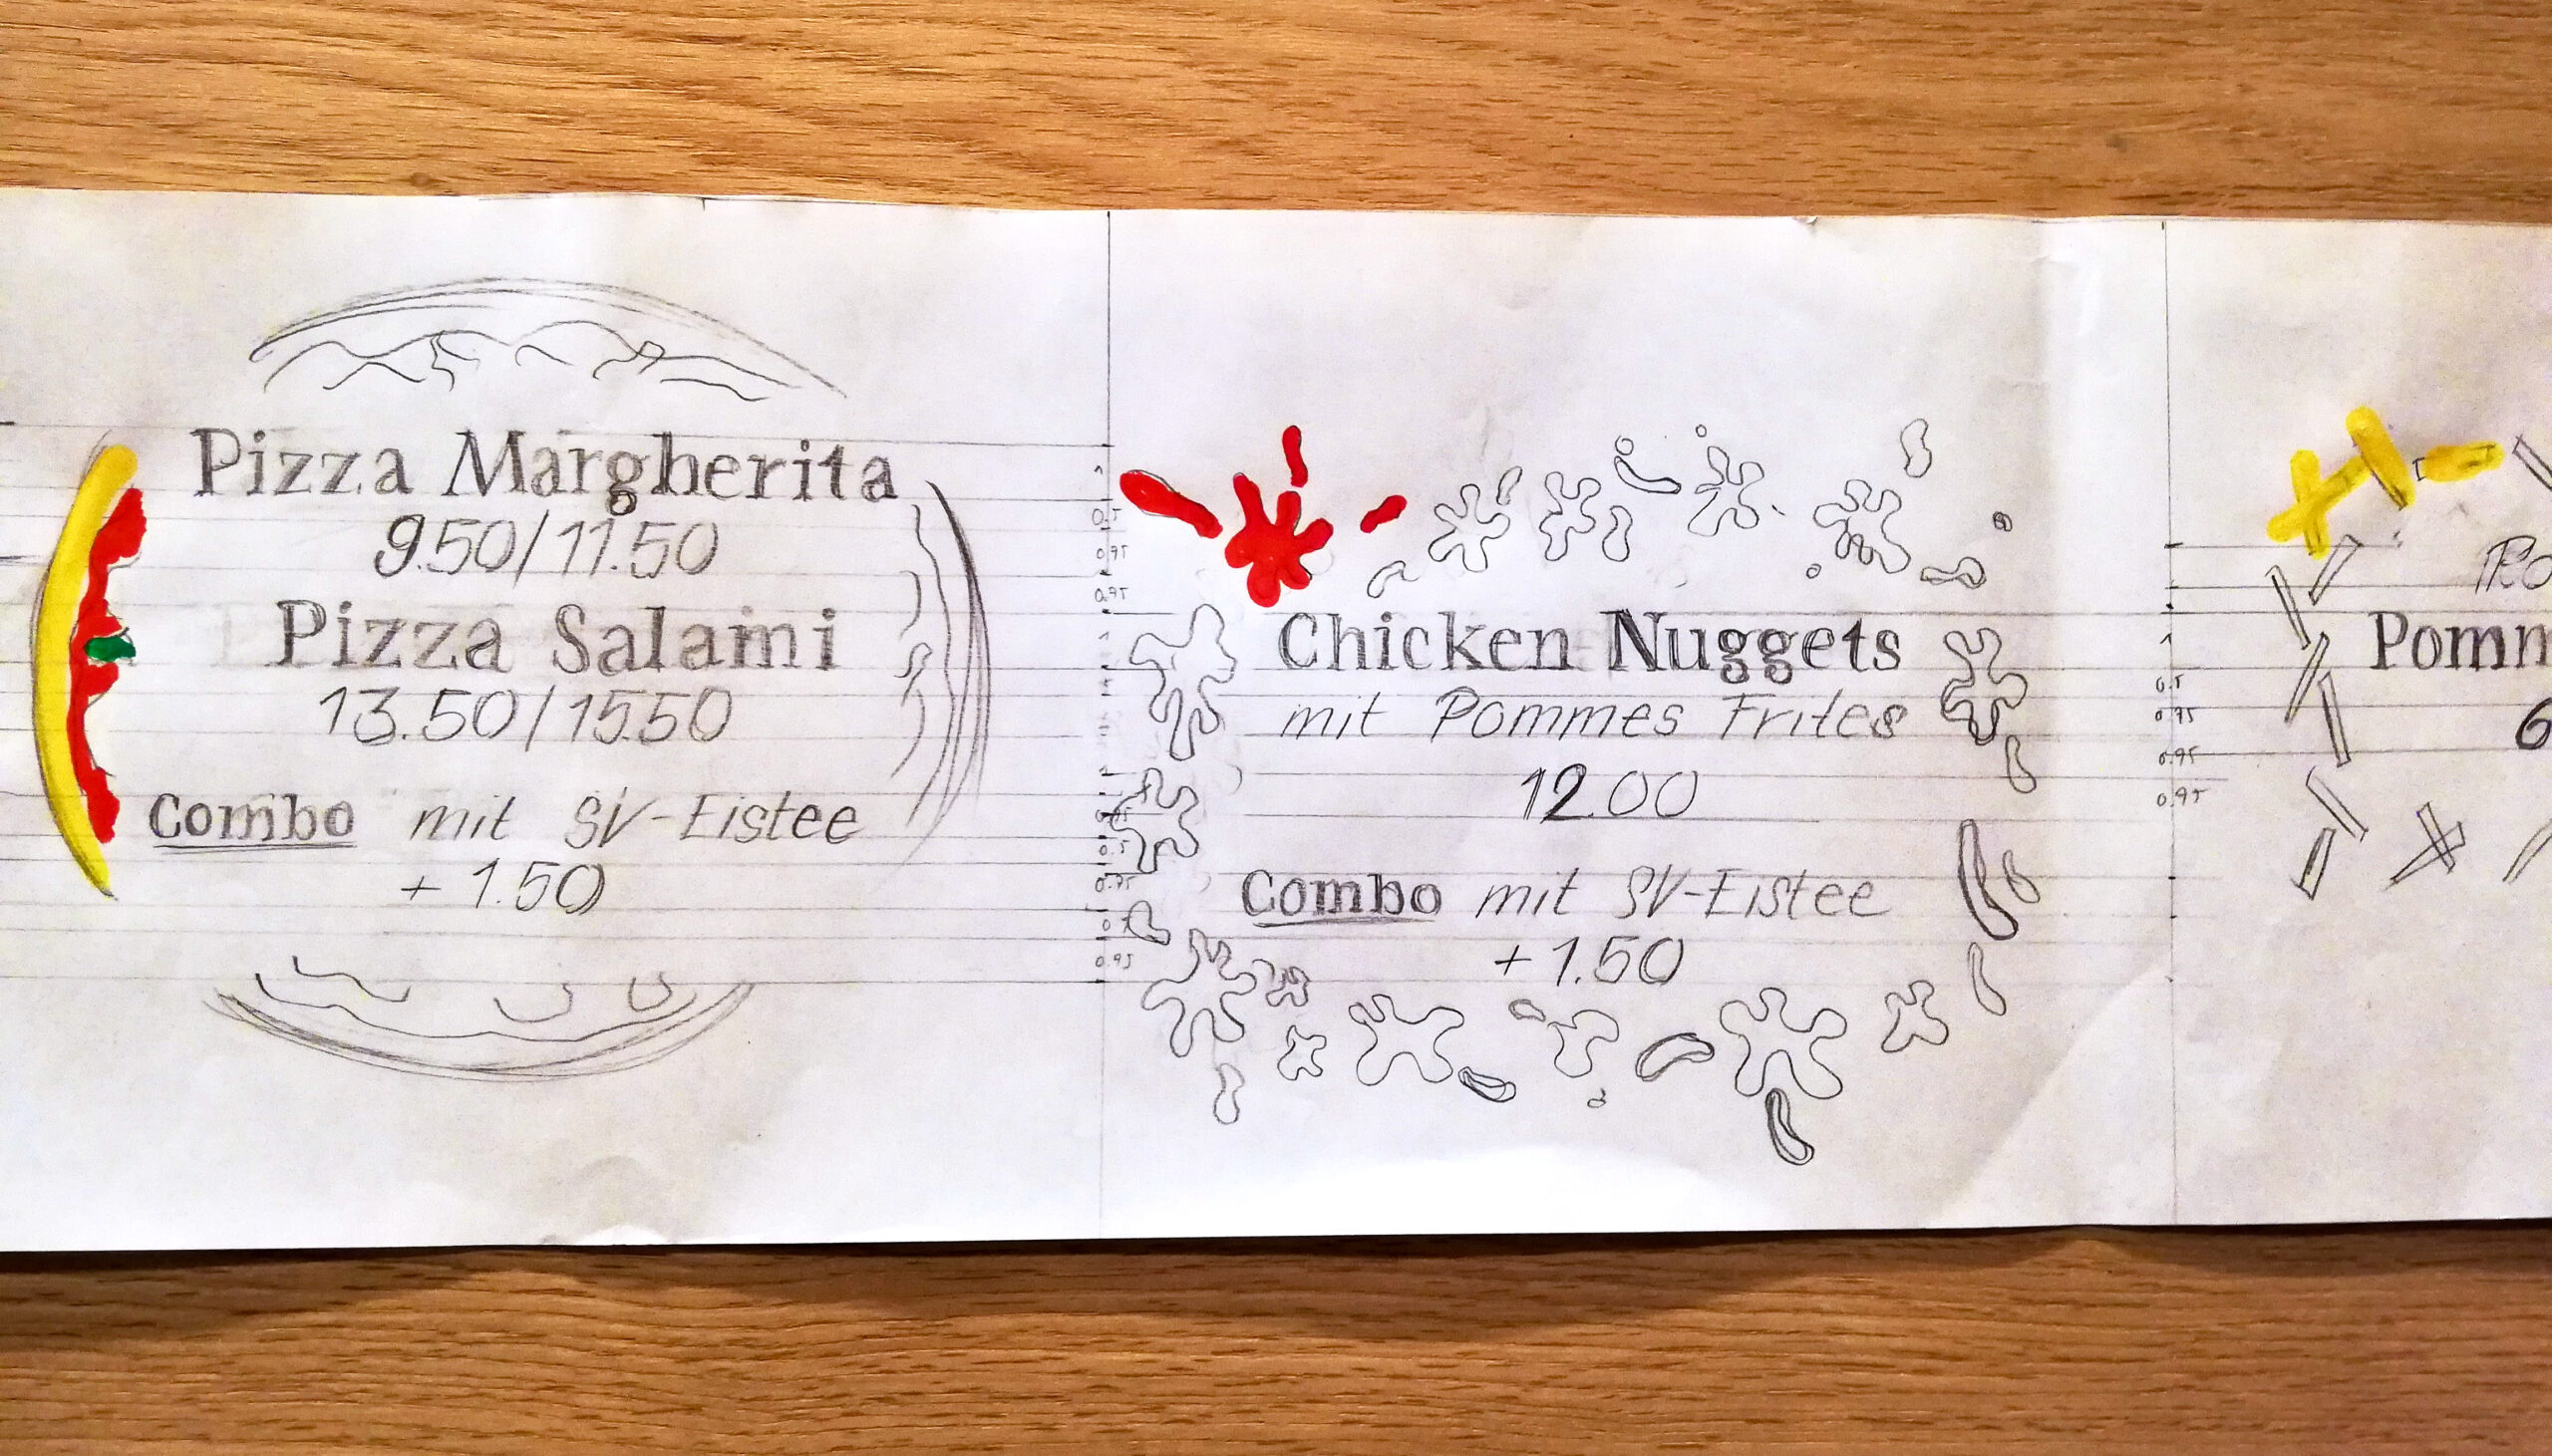 Pizza Margherita
9.50/11.50
Pizza Salami
13.50/15.50
Combo mit SV-Eistee
+ 1.50
1
0.5
0.95
0.95
Chicken Nuggets
mit Pommes Frites
12.00
Combo mit SV-Eistee
+ 1.50
0.5
0.75
0.95
Pomm
6
1
0.5
0.95
0.95
0.95